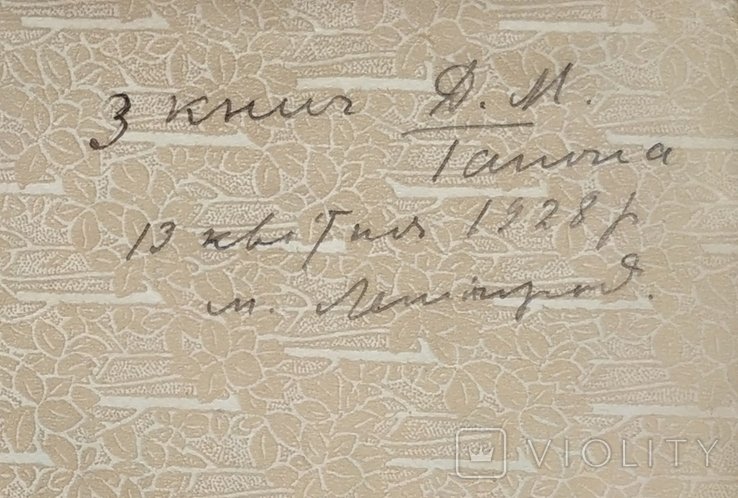 З книг Д. М.
Гапона
13 квітня 1928 р
м. Ленінград.
VIOLITY